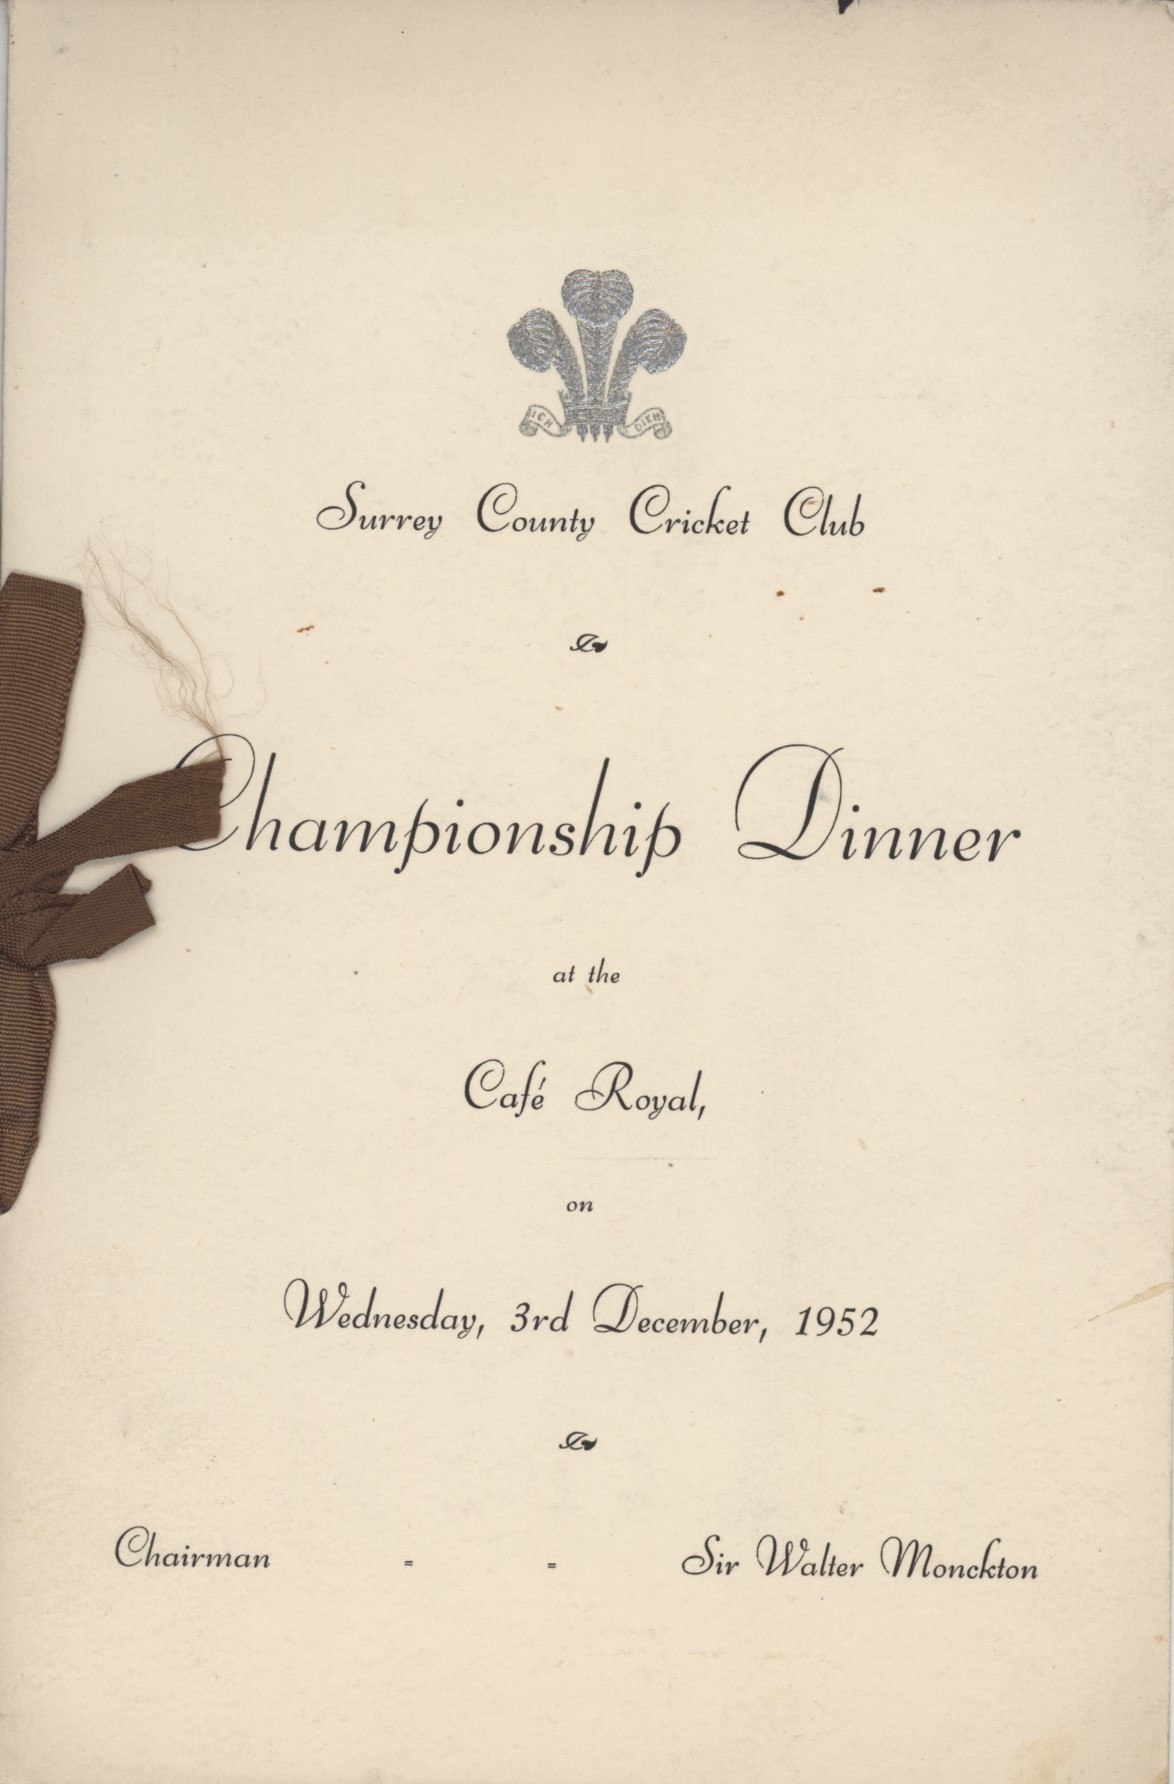 ICH DIEN
Surrey County Cricket Club
Championship Dinner
at the
Café Royal,
on
Wednesday, 3rd December, 1952
Chairman - - Sir Walter Monckton